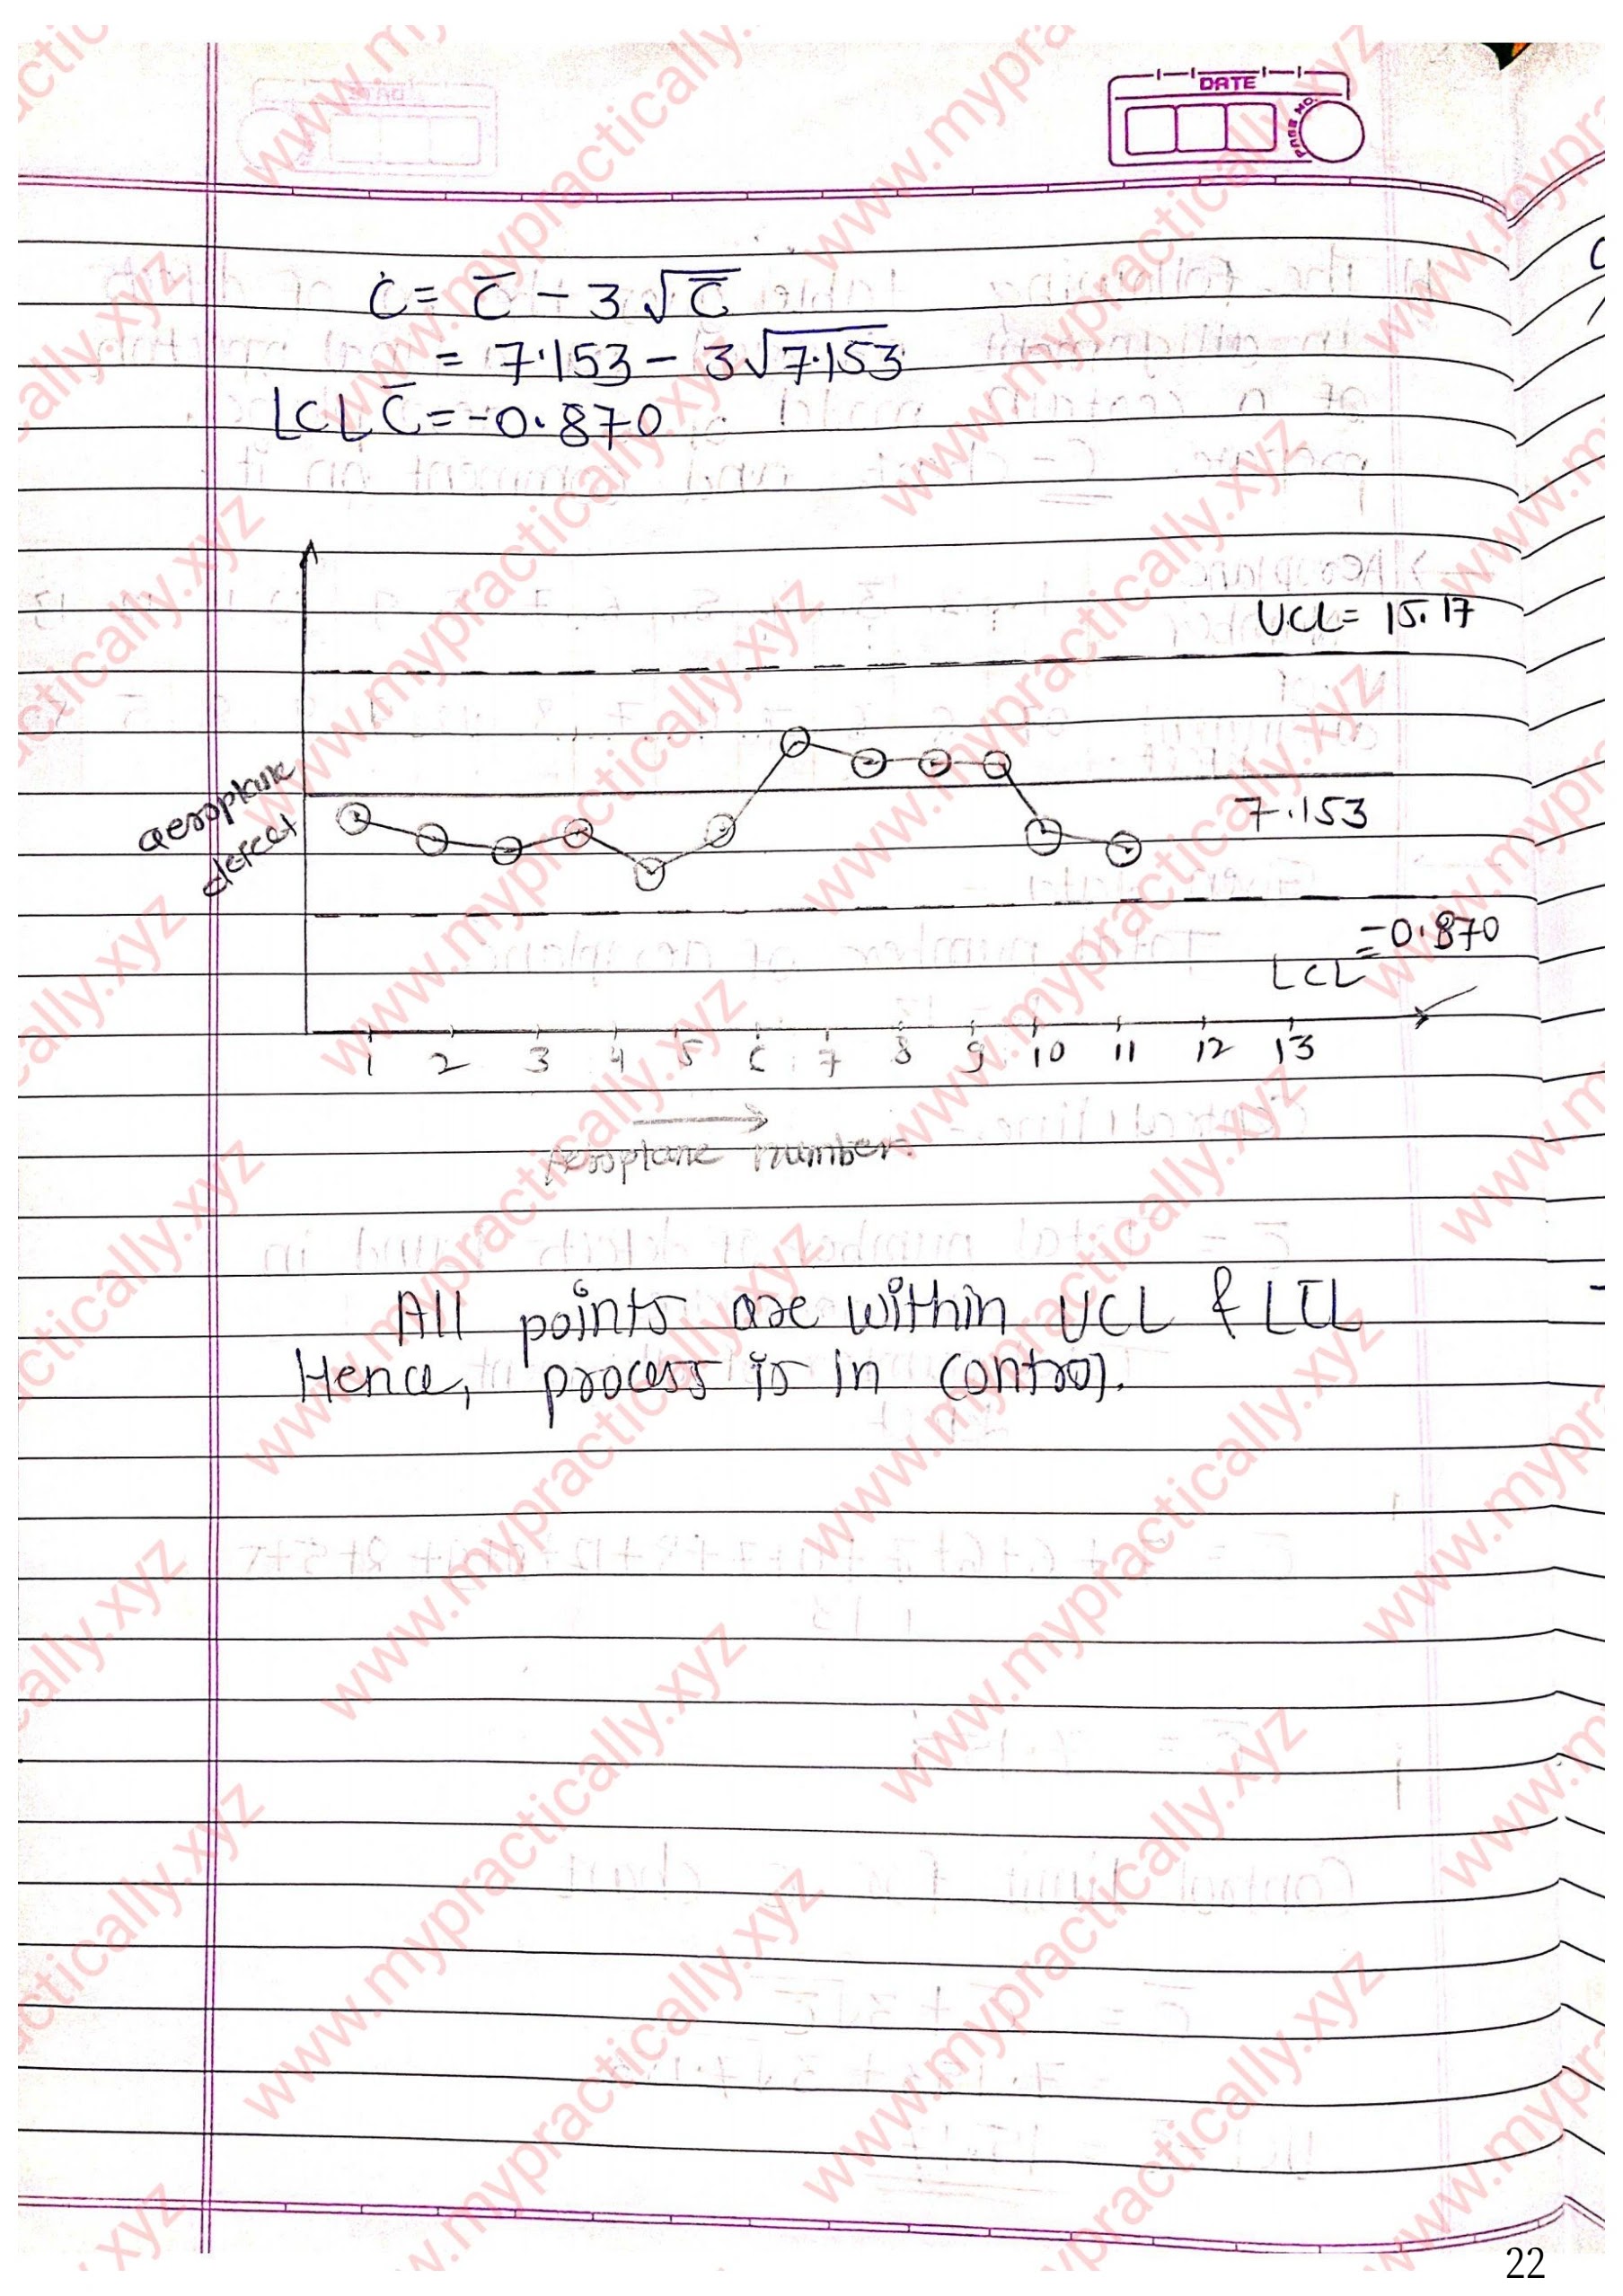 DATE
PAGE NO.
C = C̅ - 3√C̅
= 7.153 - 3√7.153
LCL C̅ = -0.870
UCL = 15.17
aeroplane
defect
7.153
= -0.870
LCL
1 2 3 4 5 6 7 8 9 10 11 12 13
Aeroplane number.
All points are within UCL & LCL
Hence, process is in control.
22
www.mypractically.xyz